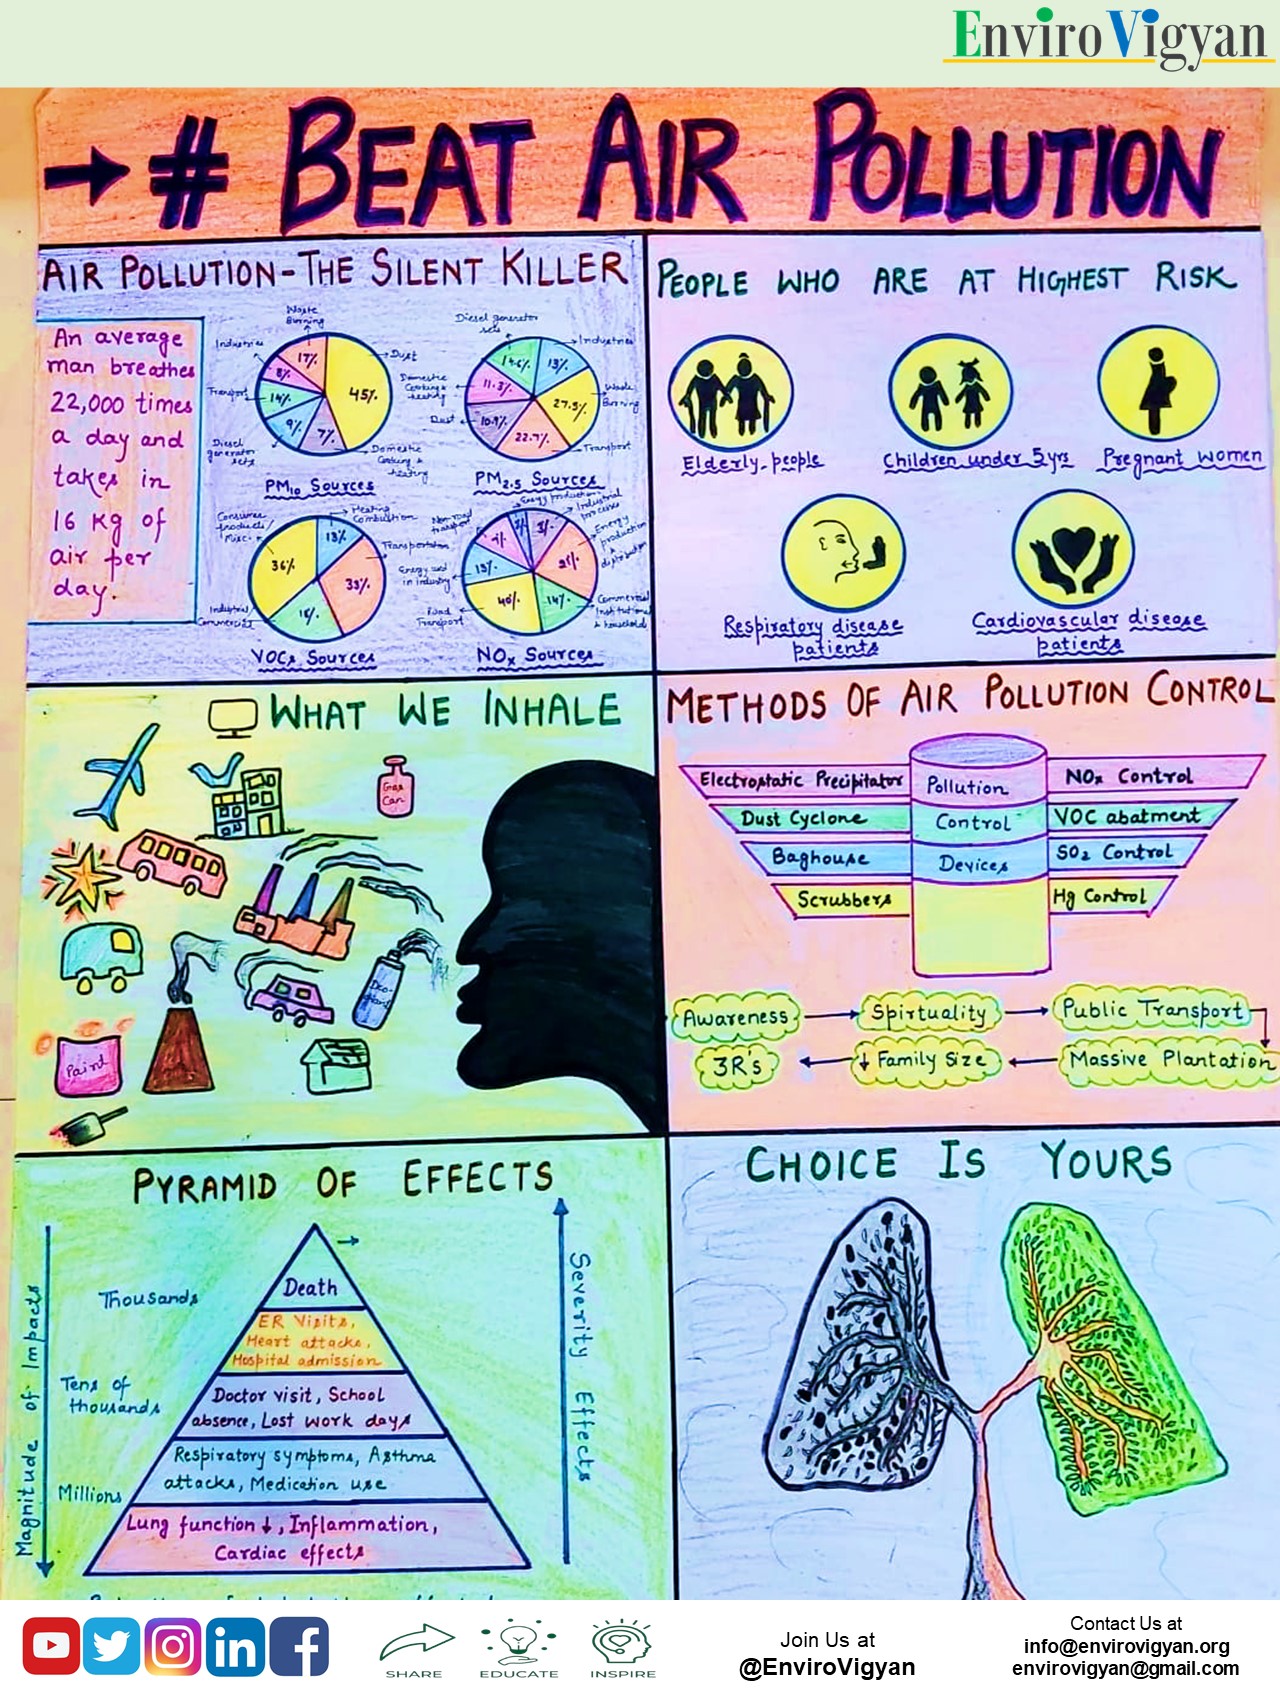 Enviro Vigyan
→ # BEAT AIR POLLUTION
AIR POLLUTION-THE SILENT KILLER
An average
man breathes
22,000 times
a day and
takes in
16 kg of
air per
day.
Waste
Burning
Industries
Transport
Diesel
generator
sets
Dust
Domestic
Cooking &
heating
17%
8%
14%
9%
7%
45%
PM10 Sources
Diesel generator
sets
Industries
Domestic
Cooking &
heating
Waste
Burning
Dust
Transport
14.6%
13%
11.3%
27.5%
10.9%
22.7%
PM2.5 Sources
Consumer
products/
Misc.
Heating
Combustion
Transportation
Industrial/
Commercial
36%
13%
33%
18%
VOCs Sources
Non-road
transport
Energy production
Industrial
processes
Energy
production
&
distribution
Energy used
in industry
Road
Transport
Commercial
Institutional
& households
3%
21%
13%
40%
14%
NOx Sources
PEOPLE WHO ARE AT HIGHEST RISK
Elderly people
Children under 5yrs
Pregnant women
Respiratory disease
patients
Cardiovascular disease
patients
WHAT WE INHALE
Gas
Can
Paint
METHODS OF AIR POLLUTION CONTROL
Electrostatic Precipitator
Pollution
NOx Control
Dust Cyclone
Control
VOC abatment
Baghouse
Devices
SO2 Control
Scrubbers
Hg Control
Awareness → Spirtuality → Public Transport
3R's ← ↓ Family Size ← Massive Plantation
PYRAMID OF EFFECTS
Magnitude of Impacts
Thousands
Tens of
thousands
Millions
Death
ER Visits,
Heart attacks,
Hospital admission
Doctor visit, School
absence, Lost work days
Respiratory symptoms, Asthma
attacks, Medication use
Lung function ↓, Inflammation,
Cardiac effects
Severity Effects
CHOICE IS YOURS
SHARE
EDUCATE
INSPIRE
Join Us at
@EnviroVigyan
Contact Us at
info@envirovigyan.org
envirovigyan@gmail.com